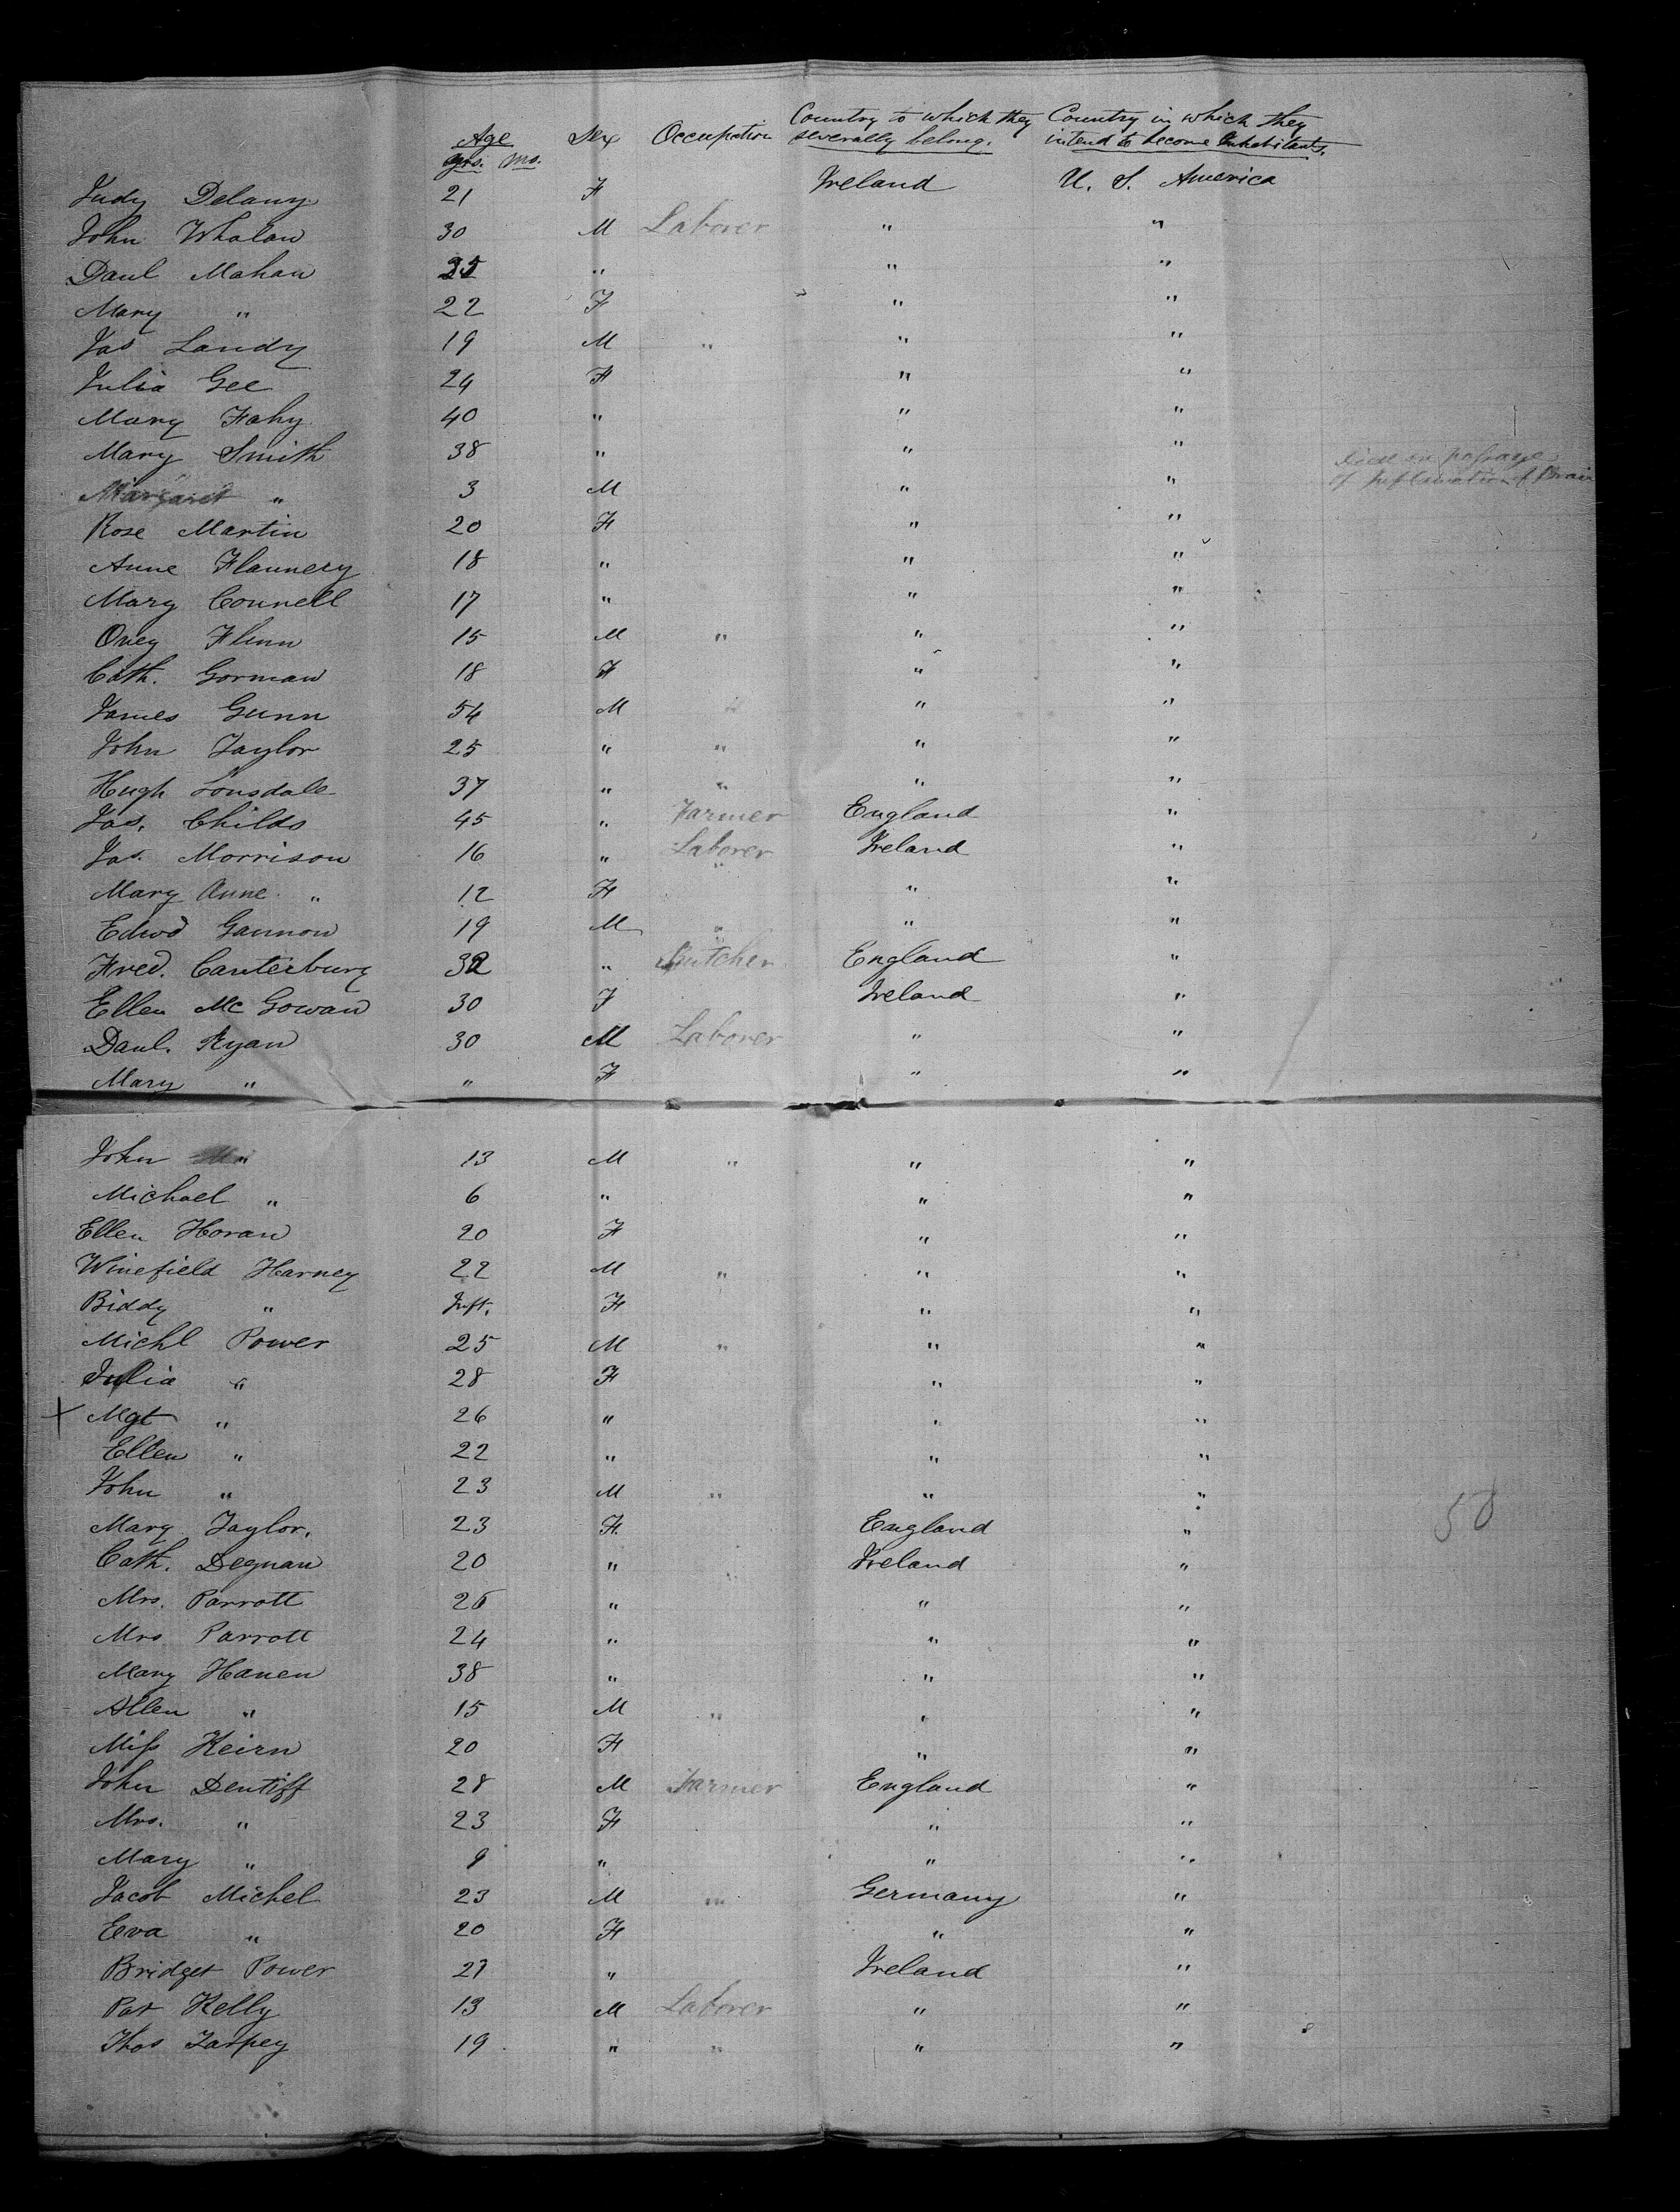 Age Sex Occupation Country to which they severally belong. Country in which they intend to become Inhabitants.
yrs. mos.
Judy Delany 21 F Ireland U. S. America
John Whalan 30 M Laborer " "
Danl Mahan 25 " " "
Mary " 22 F " "
Jas Landy 19 M " " "
Julia Gee 24 F " "
Mary Fahy 40 " " "
Mary Smith 38 " " "
Margaret " 3 M " " Died on passage of Inflamation of Brain
Rose Martin 20 F " "
Anne Flannery 18 " " "
Mary Connell 17 " " "
Oney Flinn 15 M " " "
Cath. Gorman 18 F " "
James Gunn 54 M " " "
John Taylor 25 " " " "
Hugh Lonsdale 37 " " " "
Jas. Childs 45 " Farmer England "
Jas. Morrison 16 " Laborer Ireland "
Mary Anne " 12 F " "
Edwd Gannon 19 M " " "
Fred. Canterbury 32 " Butcher England "
Ellen Mc Gowan 30 F Ireland "
Danl. Ryan 30 M Laborer " "
Mary " " F " "
John " 13 M " " "
Michael " 6 " " "
Ellen Horan 20 F " "
Winefield Harney 22 M " " "
Biddy " Inft. F " "
Michl Power 25 M " " "
Julia " 28 F " "
X Mgt " 26 " " "
Ellen " 22 " " "
John " 23 M " " "
Mary Taylor. 23 F. England "
Cath. Degnan 20 " Ireland "
Mrs. Parrott 26 " " "
Mrs Parrott 24 " " "
Mary Hanen 38 " " "
Allen " 15 M " " "
Miss Keirn 20 F " "
John Dentiff 28 M Farmer England "
Mrs. " 23 F " "
Mary " 9 " " "
Jacob Michel 23 M " Germany "
Eva " 20 F " "
Bridget Power 27 " Ireland "
Pat Kelly 13 M Laborer " "
Thos Tarpey 19 " " " "
50